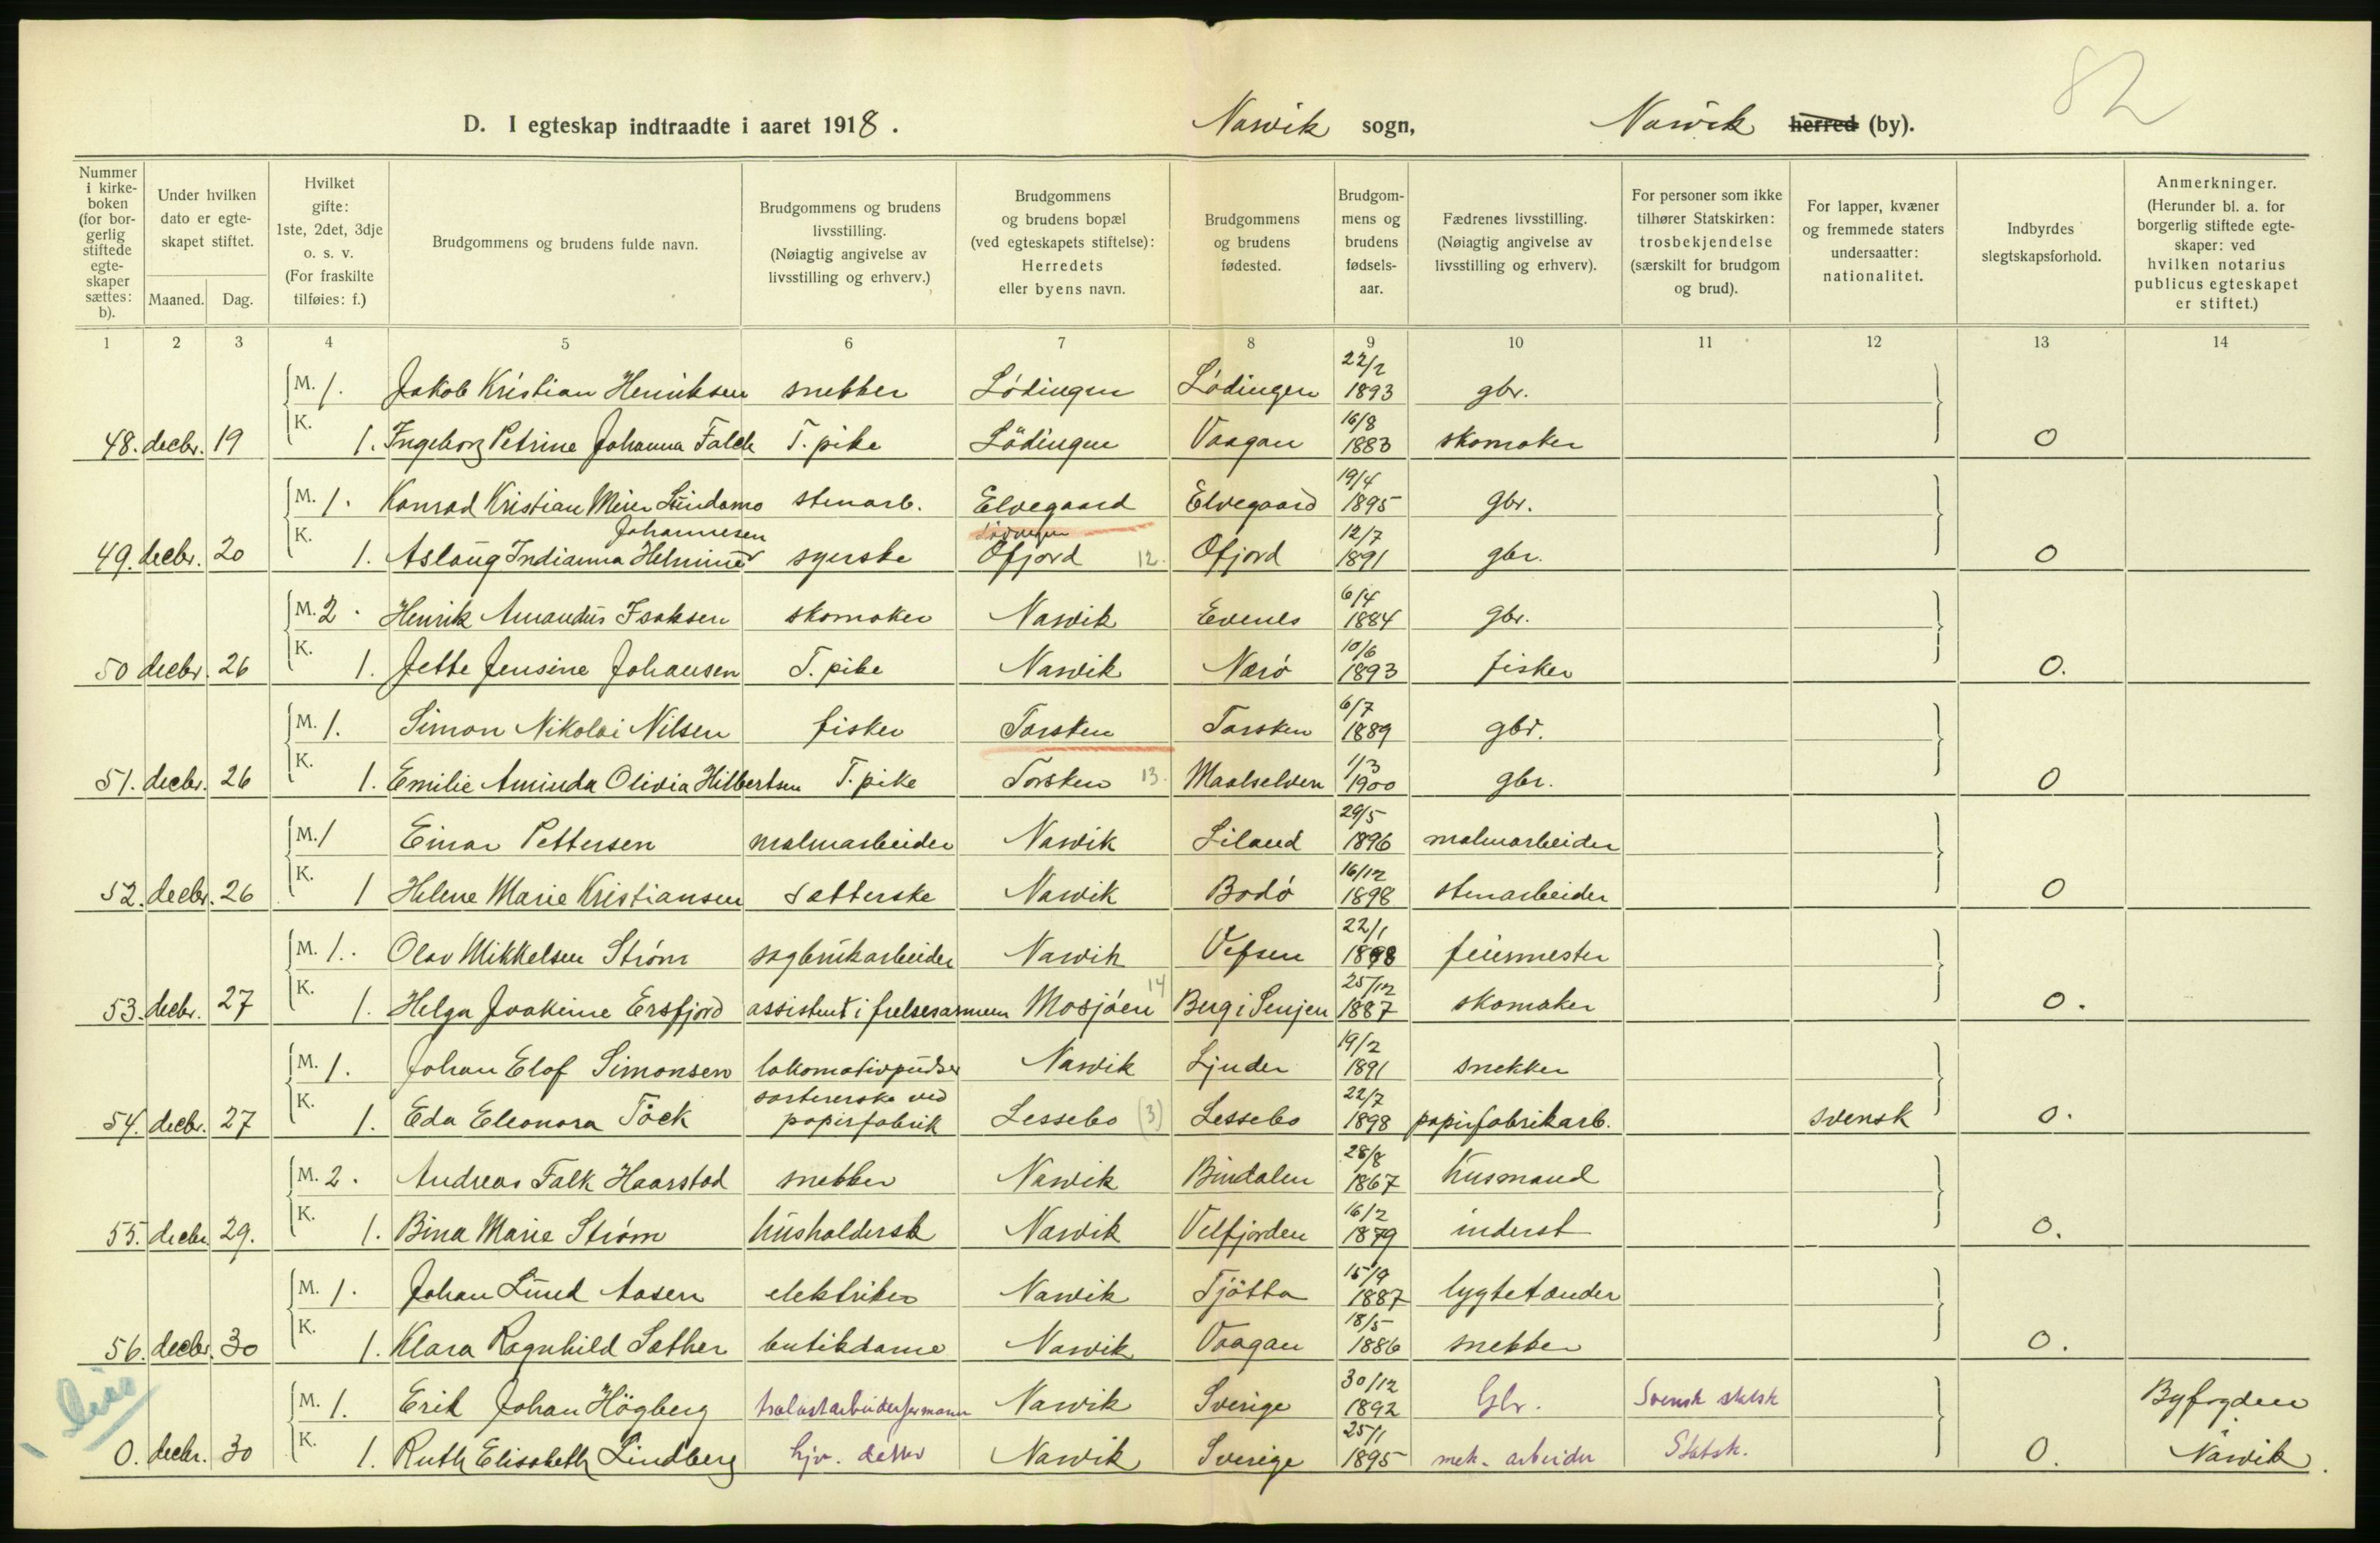 82
D. I egteskap indtraadte i aaret 1918. Narvik sogn, Narvik herred (by).
Nummer i kirkeboken (for borgerlig stiftede egteskaper sættes: b).
Under hvilken dato er egteskapet stiftet.
Maaned. Dag.
Hvilket gifte: 1ste, 2det, 3dje o. s. v. (For fraskilte tilføies: f.)
Brudgommens og brudens fulde navn.
Brudgommens og brudens livsstilling. (Nøiagtig angivelse av livsstilling og erhverv.)
Brudgommens og brudens bopæl (ved egteskapets stiftelse): Herredets eller byens navn.
Brudgommens og brudens fødested.
Brudgommens og brudens fødselsaar.
Fædrenes livsstilling. (Nøiagtig angivelse av livsstilling og erhverv).
For personer som ikke tilhører Statskirken: trosbekjendelse (særskilt for brudgom og brud).
For lapper, kvæner og fremmede staters undersaatter: nationalitet.
Indbyrdes slegtskapsforhold.
Anmerkninger. (Herunder bl. a. for borgerlig stiftede egteskaper: ved hvilken notarius publicus egteskapet er stiftet.)
1 2 3 4 5 6 7 8 9 10 11 12 13 14
M. 1. Jakob Kristian Henriksen snekker Lödingen Lödingen 22/2 1893 gbr.
48. decbr. 19 K. 1. Ingeborg Petrine Johanna Falch T. pike Lödingen Vaagan 16/8 1883 skomaker 0
M. 1. Konrad Kristian Meier Lindamo stenarb. Elvegaard Elvegaard 19/4 1895 gbr.
49. decbr. 20 K. 1. Aslaug Indianna Helmine Johannesen syerske Ofjord 12. Ofjord 12/7 1891 gbr. 0
M. 2. Henrik Amandus Isaksen skomaker Narvik Evenes 6/4 1884 gbr.
50 decbr. 26 K. 1. Jette Jensine Johansen T. pike Narvik Nærö 10/6 1893 fisker 0.
M. 1. Simon Nikolai Nilsen fisker Torsken Torsken 6/7 1889 gbr.
51. decbr. 26 K. 1. Emilie Aminda Olivia Hilbertsen T. pike Torsken 13. Maalselven 1/3 1900 gbr. 0
M. 1 Einar Pettersen malmarbeider Narvik Liland 29/5 1896 malmarbeider
52. decbr. 26 K. 1 Helene Marie Kristiansen sætterske Narvik Bodö 16/12 1898 stenarbeider 0
M. 1. Olav Mikkelsen Strøm sagbrukarbeider Narvik Vefsen 22/1 1898 feiermester
53. decbr. 27 K. 1. Helga Joakime Ersfjord assistent i frelsesarmeen Mosjöen 14 Berg i Senjen 25/12 1887 skomaker 0.
M. 1. Johan Elof Simonsen lokomotivpudser Narvik Ljuder 19/2 1891 snekker
54. decbr. 27 K. 1. Eda Eleonora Töck sortererske ved papirfabrik Lessebo (3) Lessebo 22/7 1898 papirfabrikarb. svensk 0.
M. 2. Andreas Falk Haarstad snekker Narvik Bindalen 28/8 1867 husmand
55. decbr 29. K. 1. Bina Marie Strøm husholdersk Narvik Velfjorden 16/2 1879 inderst 0.
M. 1. Johan Lund Aasen elektriker Narvik Tjötta 15/9 1887 lygtetænder
56. decbr. 30 K. 1. Klara Ragnhild Sæther butikdame Narvik Vaagan 18/5 1886 snekker 0.
M. 1. Erik Johan Högberg Narvik Sverige 30/12 1892 Gbr. Svensk statsk Byfogden
0. decbr. 30 K. 1. Ruth Elisabeth Lindberg hjv. datter Narvik Sverige 25/1 1895 mek. arbeider Statsk. 0. Narvik.